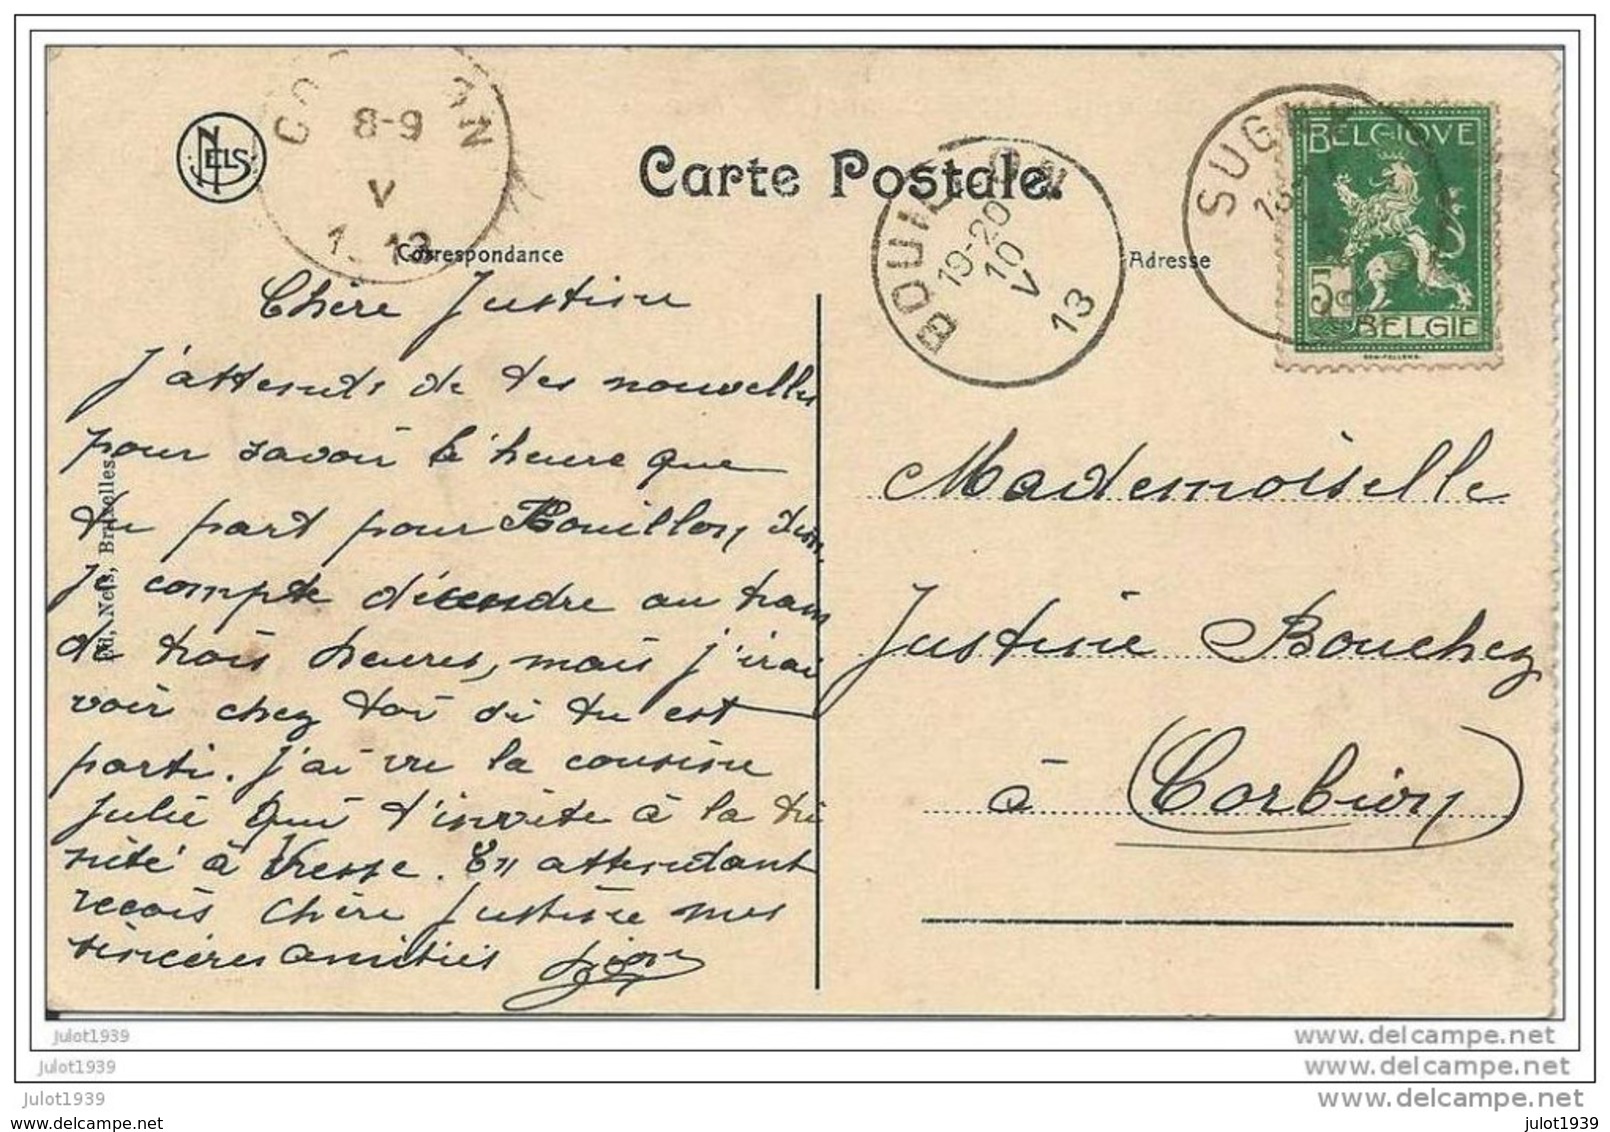 NELS
8-9
V
Carte Postale.
BOUILLON
19-20
10
V
13
SUGNY
BELGIQUE
5
BELGIË
Correspondance
Adresse
Chère Justine
J'attends de tes nouvelles
pour savoir l'heure que
tu part pour Bouillon,
je compte décendre au tram
de trois heures, mais j'irai
voir chez toi si tu est
parti. J'ai vu la cousine
Julie qui t'invite à la tri
nité à Vresse. En attendant
recois chère Justine mes
sincères amitiés
Ed. Nels, Bruxelles.
Mademoiselle
Justine Bouchez
à (Corbion)
julot1939
www.delcampe.net
julot1939
www.delcampe.net
julot1939
www.delcampe.net
www.delcampe.net
julot1939